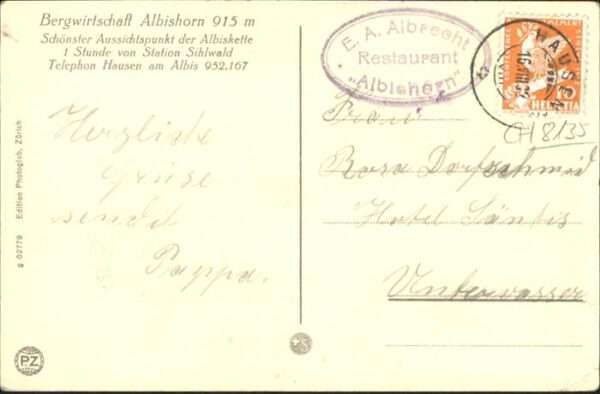 Bergwirtschaft Albishorn 915 m
Schönster Aussichtspunkt der Albiskette
1 Stunde von Station Sihlwald
Telephon Hausen am Albis 952.167
E. A. Albrecht
Restaurant
"Albishorn"
HAUSEN
HELVETIA
CH 8/35
Herzliche
Grüsse
sendet
Pappa.
Frau
Rosa Dorfschmid
Hotel Säntis
Unterwasser
g 02779 Edition Photoglob, Zürich
PZ